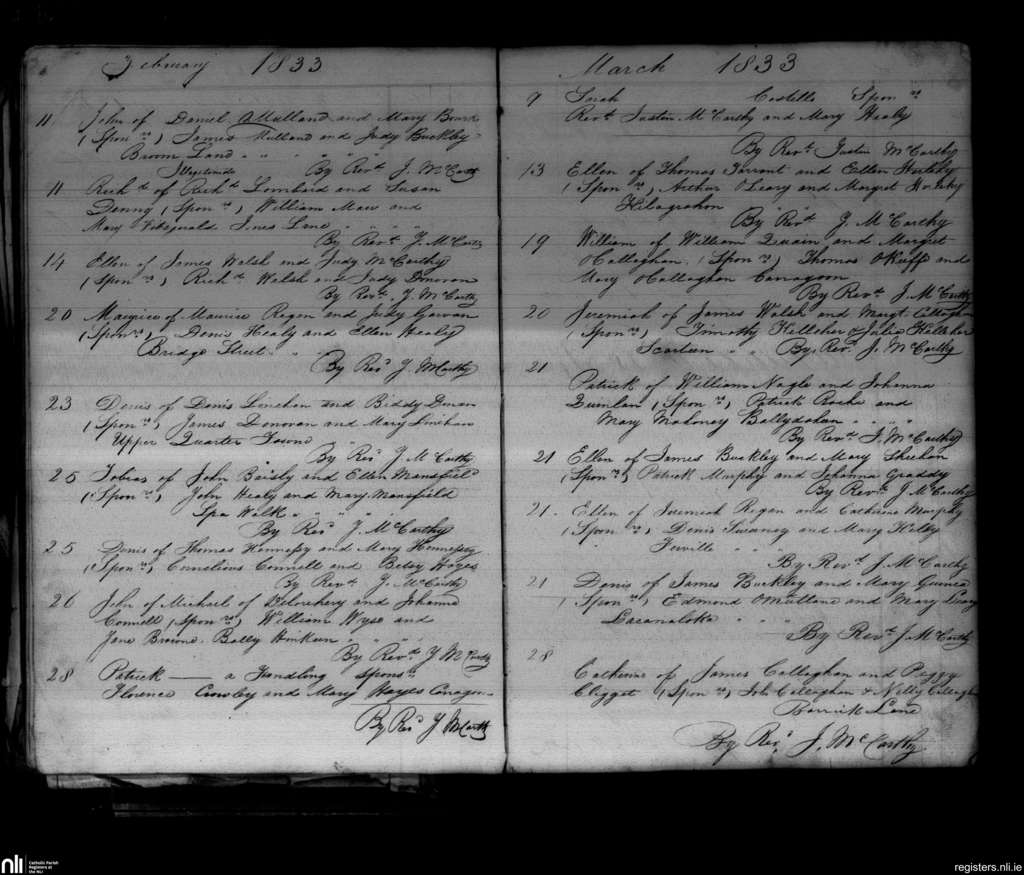 February 1833
11 John of Daniel Mulland and Mary Bourd
(Sponrs) James Mulland and Judy Buckley
Broom Land " " " "
Illegitimate By Revd. J. McCarthy
11 Richd of Richd Lombard and Susan
Denny (Sponrs) William Maw and
Mary Fitzgerald Lane " " "
By Revd. J. McCarthy
14 Ellen of James Walsh and Judy McCarthy
(Sponrs) Richd Walsh and Judy Donovan
By Revd. J. McCarthy
20 Maurice of Maurice Regan and Judy
(Sponrs) Denis Healy and Ellen Healy
Bridge Street " "
By Revd J. McCarthy
23 Denis of Denis Linehan and Biddy
(Sponrs) James Donovan and Mary Linehan
Upper Quarter Town
By Revd J. McCarthy
25 Tobias of John and Ellen Mansfield
(Sponrs) John Healy and Mary Mansfield
Spa Walk " " " "
By Revd J. McCarthy
25 Denis of Thomas Hennessy and Mary Hennessy
(Sponrs) Cornelious Connell and Betsy Hayes
By Revd. J. McCarthy
26 John of Michael of and Johanna
Connell (Sponrs) William Wyse and
Jane Browne. Bally " " "
By Revd. J McCarthy
28 Patrick —— a Fondling Sponsrs
Florence Crowley and Mary Hayes
By Revd J McCarthy
March 1833
9 Sarah Costello Sponrs
Revd. Justin McCarthy and Mary Healy
By Revd. Justin McCarthy
13 Ellen of Thomas Tarrant and Ellen
(Sponrs) Arthur OLeary and Margret
By Revd J. McCarthy
19 William of William Quain and Margret
OCallaghan (Sponrs) Thomas OKeiffe and
Mary OCallaghan Carragoon
By Revd. J. McCarthy
20 Jeremiah of James Walsh and Margt. Callaghan
(Sponrs) Timothy Kelleher & Julia Kelleher
Scarteen " " By Revd. J. McCarthy
21
Patrick of William Nagle and Johanna
Quinlan (Sponrs) Patrick Roche and
Mary Mahoney Ballydahen " " " "
By Revd. J. McCarthy
21 Ellen of James Buckley and Mary Sheehan
(Sponrs) Patrick Murphy and Johanna Graddy
By Revd. J McCarthy
21. Ellen of Jeremiah Regan and Catherine Murphy
(Sponrs) Denis Sweeney and Mary Kelly
" " "
By Revd J. McCarthy
21 Denis of James Buckley and Mary Guinea
(Sponrs) Edmond OMullane and Mary Leary
" " "
By Revd J. McCarthy
28
Catherine of James Callaghan and Peggy
Cligget (Sponrs) Joh. Callaghan & Nelly Callaghan
Barrick Lane
By Revd J. McCarthy
nli
Catholic Parish
Registers at
the NLI
registers.nli.ie